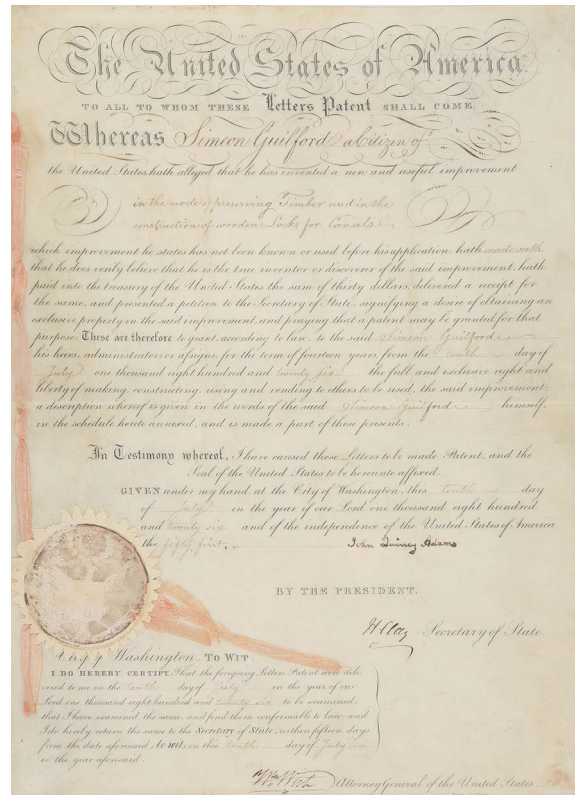 The United States of America.
TO ALL TO WHOM THESE Letters Patent SHALL COME:
Whereas Simeon Guilford a Citizen of
the United States hath alleged that he has invented a new and useful improvement
in the mode of preserving Timber used in the
construction of wooden Locks for Canals
which improvement he states has not been known or used before his application hath made oath
that he does verily believe that he is the true inventor or discoverer of the said improvement hath
paid into the treasury of the United States the sum of thirty dollars, delivered a receipt for
the same, and presented a petition to the Secretary of State, signifying a desire of obtaining an
exclusive property in the said improvement, and praying that a patent may be granted for that
purpose. These are therefore to grant, according to law, to the said Simeon Guilford
his heirs, administrators or assigns, for the term of fourteen years, from the tenth day of
July one thousand eight hundred and twenty six the full and exclusive right and
liberty of making, constructing, using and vending to others to be used, the said improvement;
a description whereof is given in the words of the said Simeon Guilford himself,
in the schedule hereto annexed, and is made a part of these presents.
In Testimony whereof, I have caused these Letters to be made Patent, and the
Seal of the United States to be hereunto affixed.
GIVEN under my hand, at the City of Washington, this tenth day
of July in the year of our Lord one thousand eight hundred
and twenty six and of the independence of the United States of America
the fifty first.
John Quincy Adams
BY THE PRESIDENT.
H Clay Secretary of State.
City of Washington, TO WIT:
I DO HEREBY CERTIFY, That the foregoing Letters Patent were deli-
vered to me on the tenth day of July in the year of our
Lord one thousand eight hundred and twenty six to be examined;
that I have examined the same, and find them conformable to law; and
I do hereby return the same to the Secretary of State, within fifteen days
from the date aforesaid, to wit; on this tenth day of July
in the year aforesaid.
Wm Wirt Attorney General of the United States.